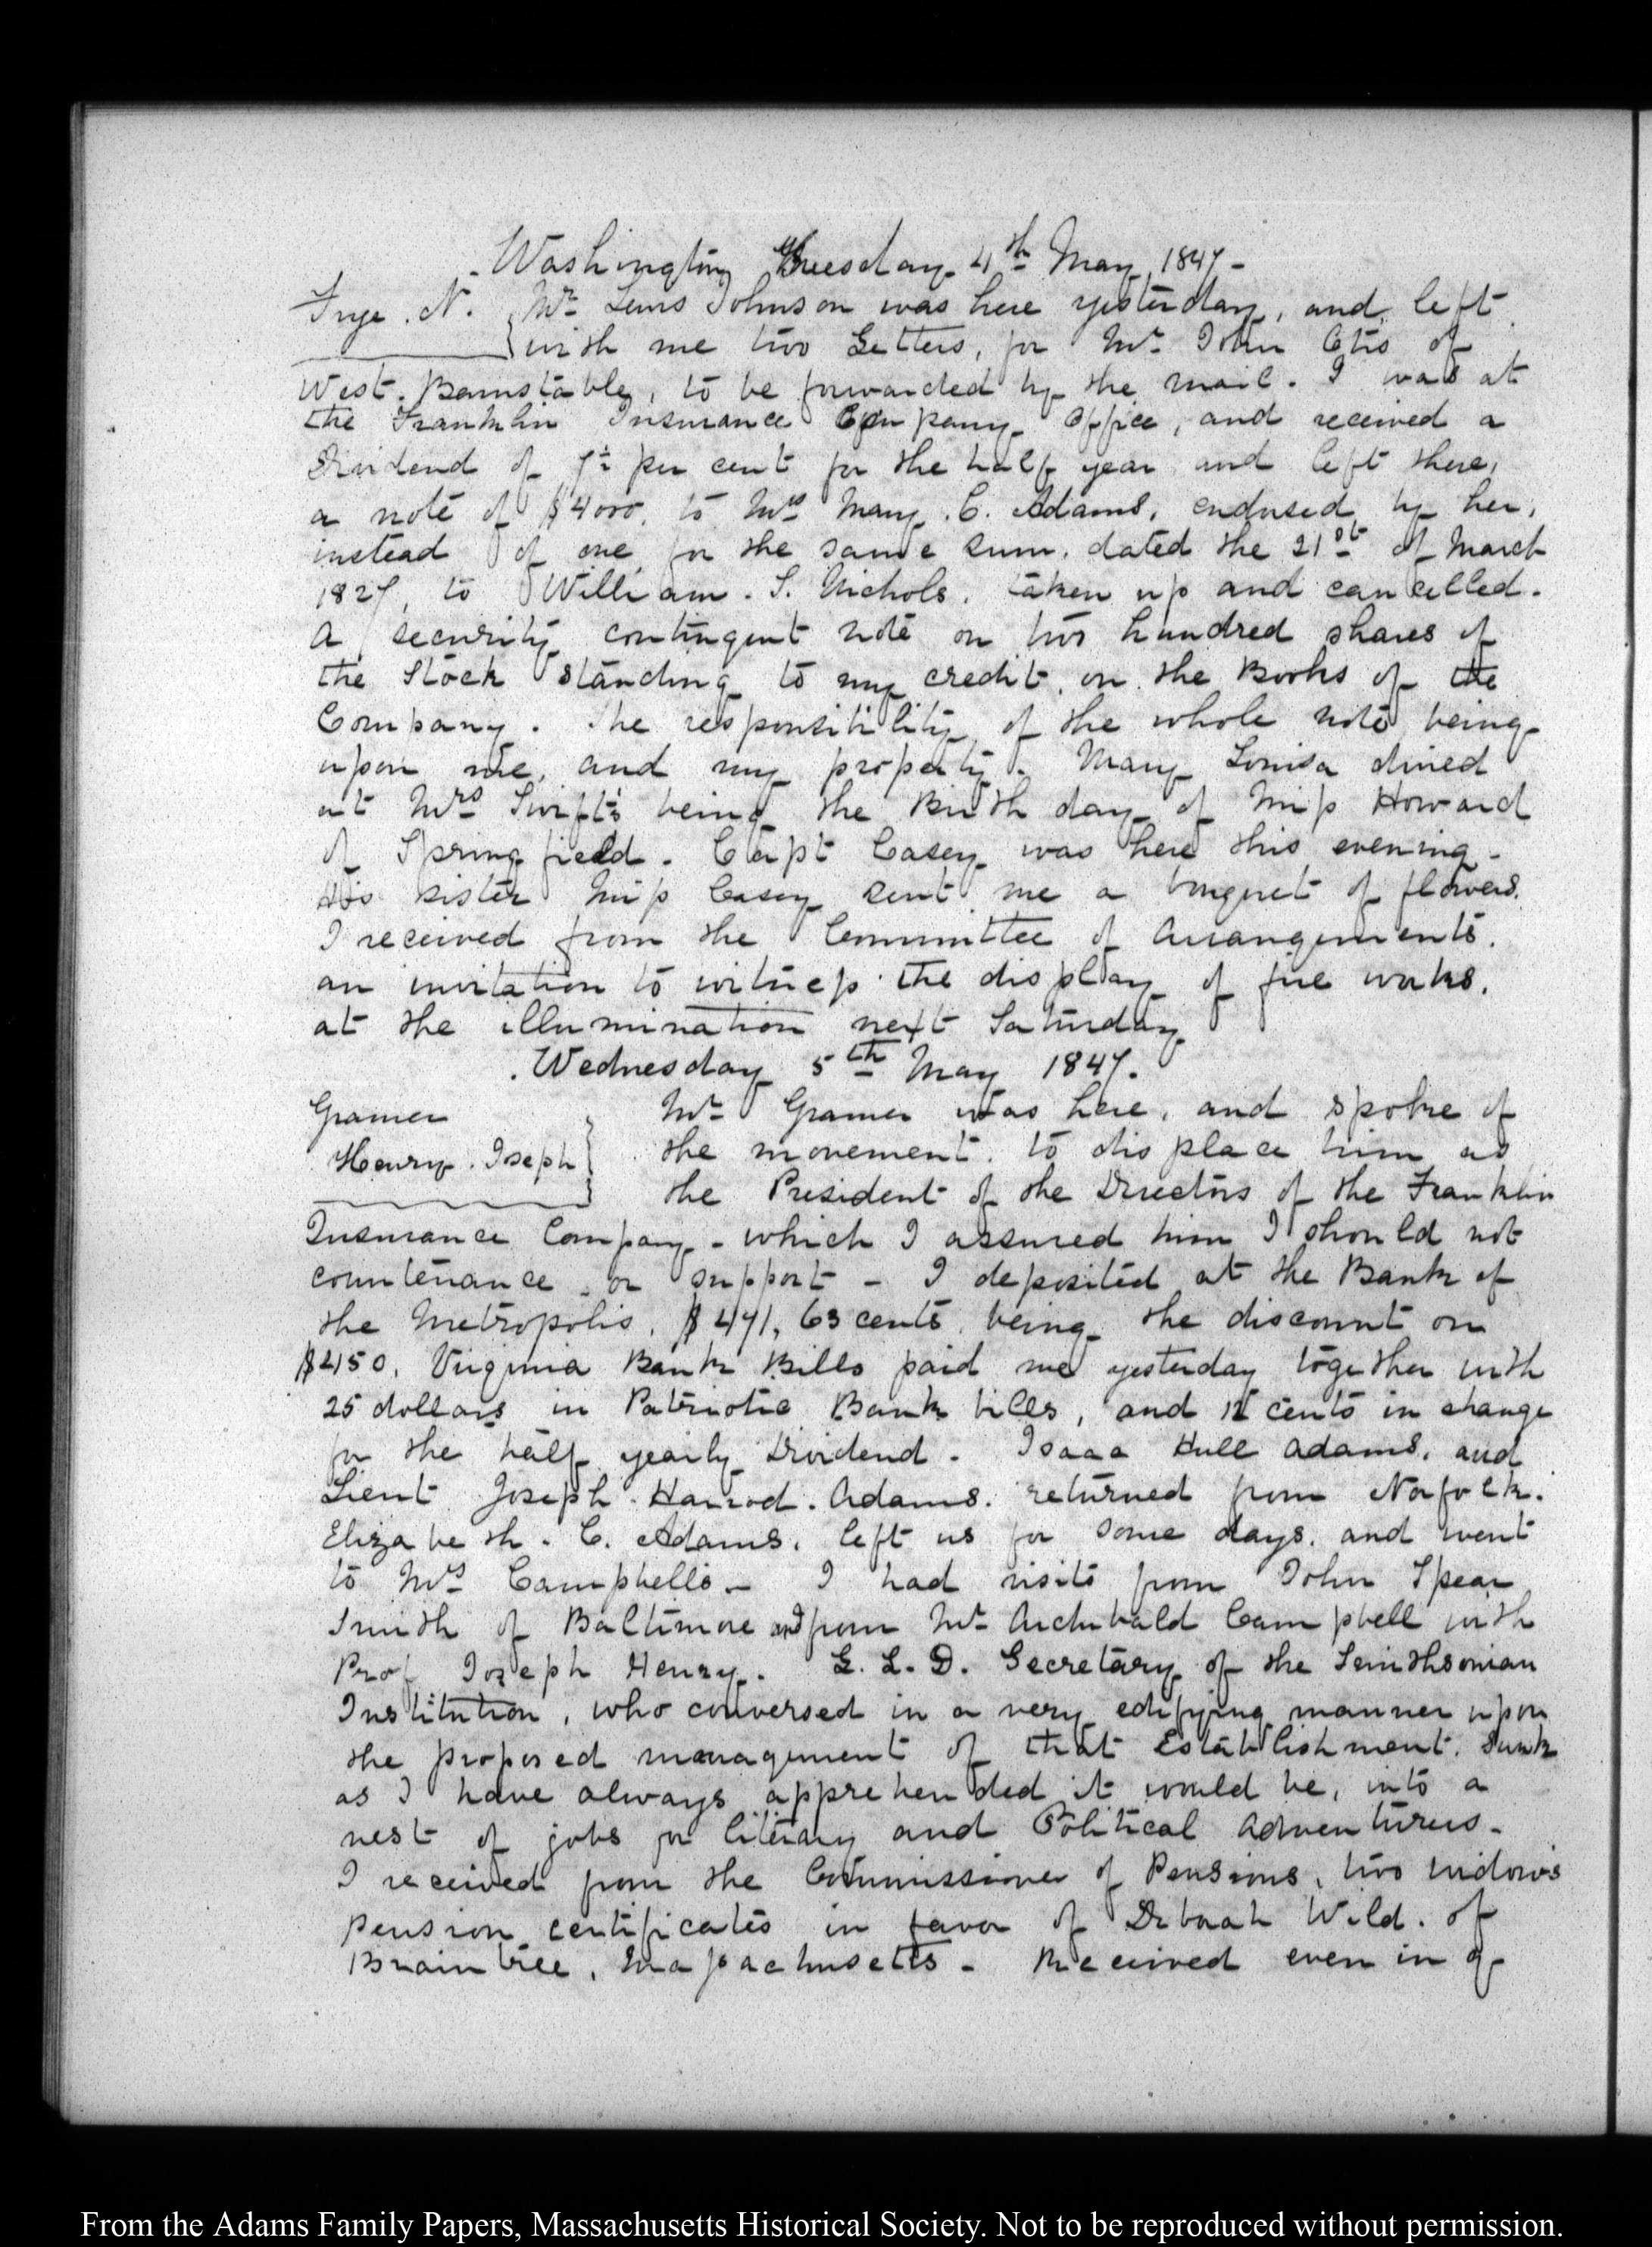 Washington Tuesday 4th May 1847-
Frye. N. Mr Lewis Johnson was here yesterday, and left
with me two Letters, for Mr John Otis of
West. Barnstable, to be forwarded by the mail. I was at
the Franklin Insurance Company Office, and received a
Dividend of per cent for the half year and left there,
a note of $4000, to Mrs Mary. C. Adams, endorsed by her,
instead of one for the same sum, dated the 21st of March
1827, to William. S. Nichols, taken up and cancelled.
A security contingent note on two hundred shares of
the Stock standing to my credit, on the Books of the
Company. The responsibility of the whole note being
upon me, and my property. Mary Louisa dined
at Mrs Swift's being the Birth day of Miss Howard
of Springfield. Capt Casey was here this evening-
His sister Miss Casey sent me a bouquet of flowers.
I received from the Committee of Arrangements.
an invitation to witness the display of fire works,
at the illumination next Saturday
Wednesday 5th May 1847.
Gramer Mr Gramer was here, and spoke of
Henry. Joseph the movement. to displace him as
the President of the Directors of the Franklin
Insurance Company - which I assured him I should not
countenance or support - I deposited at the Bank of
the Metropolis, 63 cents, being the discount on
$450, Virginia Bank Bills paid me yesterday together with
25 dollars in Patriotic Bank bills, and cents in change
for the half yearly Dividend - Isaac Hull Adams, and
Lieut Joseph. Harrod. Adams. returned from Norfolk.
Elizabeth. C. Adams, left us for some days. and went
to Mrs Campbells - I had visits from John Spear
Smith of Baltimore and from Mr Archibald Campbell with
Prof Joseph Henry. L. L. D. Secretary of the Smithsonian
Institution, who conversed in a very edifying manner upon
the proposed management of that Establishment. Sunk
as I have always apprehended it would be, into a
nest of jobs for literary and Political adventurers-
I received from the Commissioner of Pensions, two widow's
pension certificates in favor of Deborah Wild. of
Braintree, Massachusetts - Received even in g
From the Adams Family Papers, Massachusetts Historical Society. Not to be reproduced without permission.